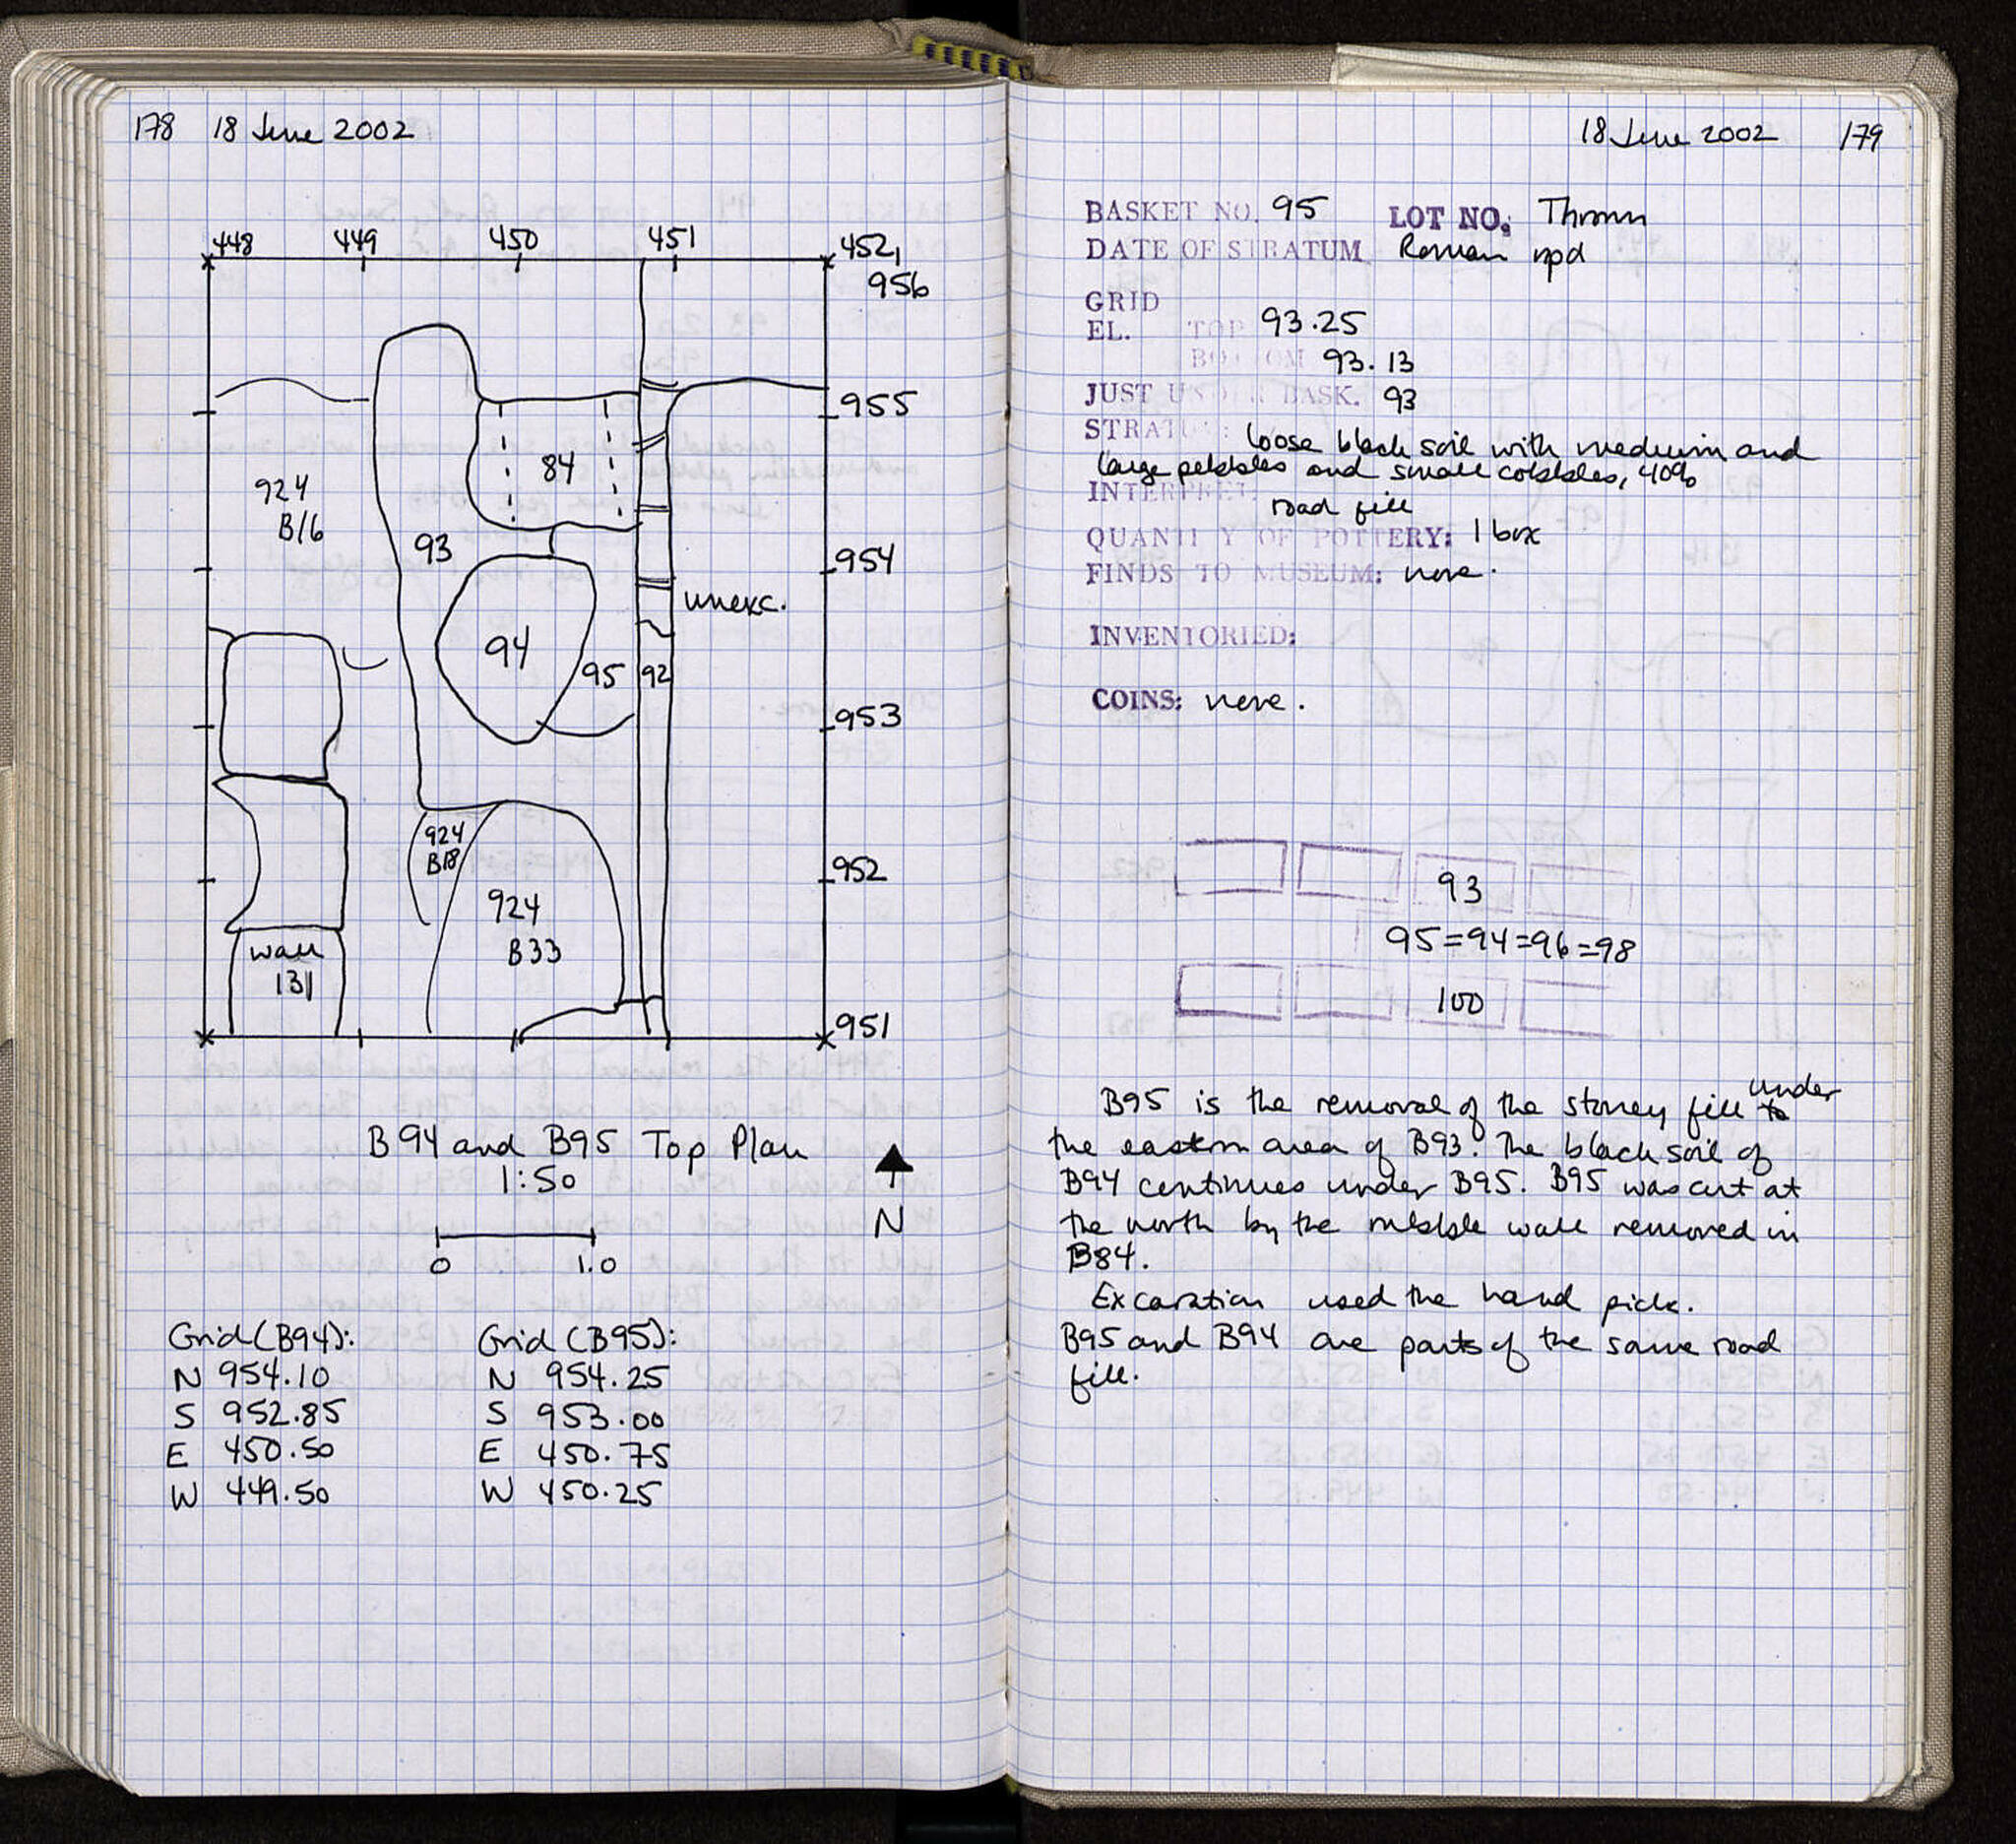 178 18 June 2002
448 449 450 451 452,
956
955
84
924
B16
93
954
unexc.
94
95 92
953
924
B18
952
924
B33
wall
131
951
B94 and B95 Top Plan
1:50
N
0 1.0
Grid (B94): Grid (B95):
N 954.10 N 954.25
S 952.85 S 953.00
E 450.50 E 450.75
W 449.50 W 450.25
18 June 2002 179
BASKET NO. 95 LOT NO: Thrown
DATE OF STRATUM Roman npd
GRID
EL. TOP 93.25
BOTTOM 93.13
JUST UNDER BASK. 93
STRAT: loose black soil with medium and
large pebbles and small cobbles, 40%
INTERPRET.
road fill
QUANTITY OF POTTERY: 1 box
FINDS TO MUSEUM: none.
INVENTORIED:
COINS: none.
93
95=94=96=98
100
B95 is the removal of the stoney fill under
the eastern area of B93. The black soil of
B94 continues under B95. B95 was cut at
the north by the rubble wall removed in
B84.
Excavation used the hand pick.
B95 and B94 are parts of the same road
fill.